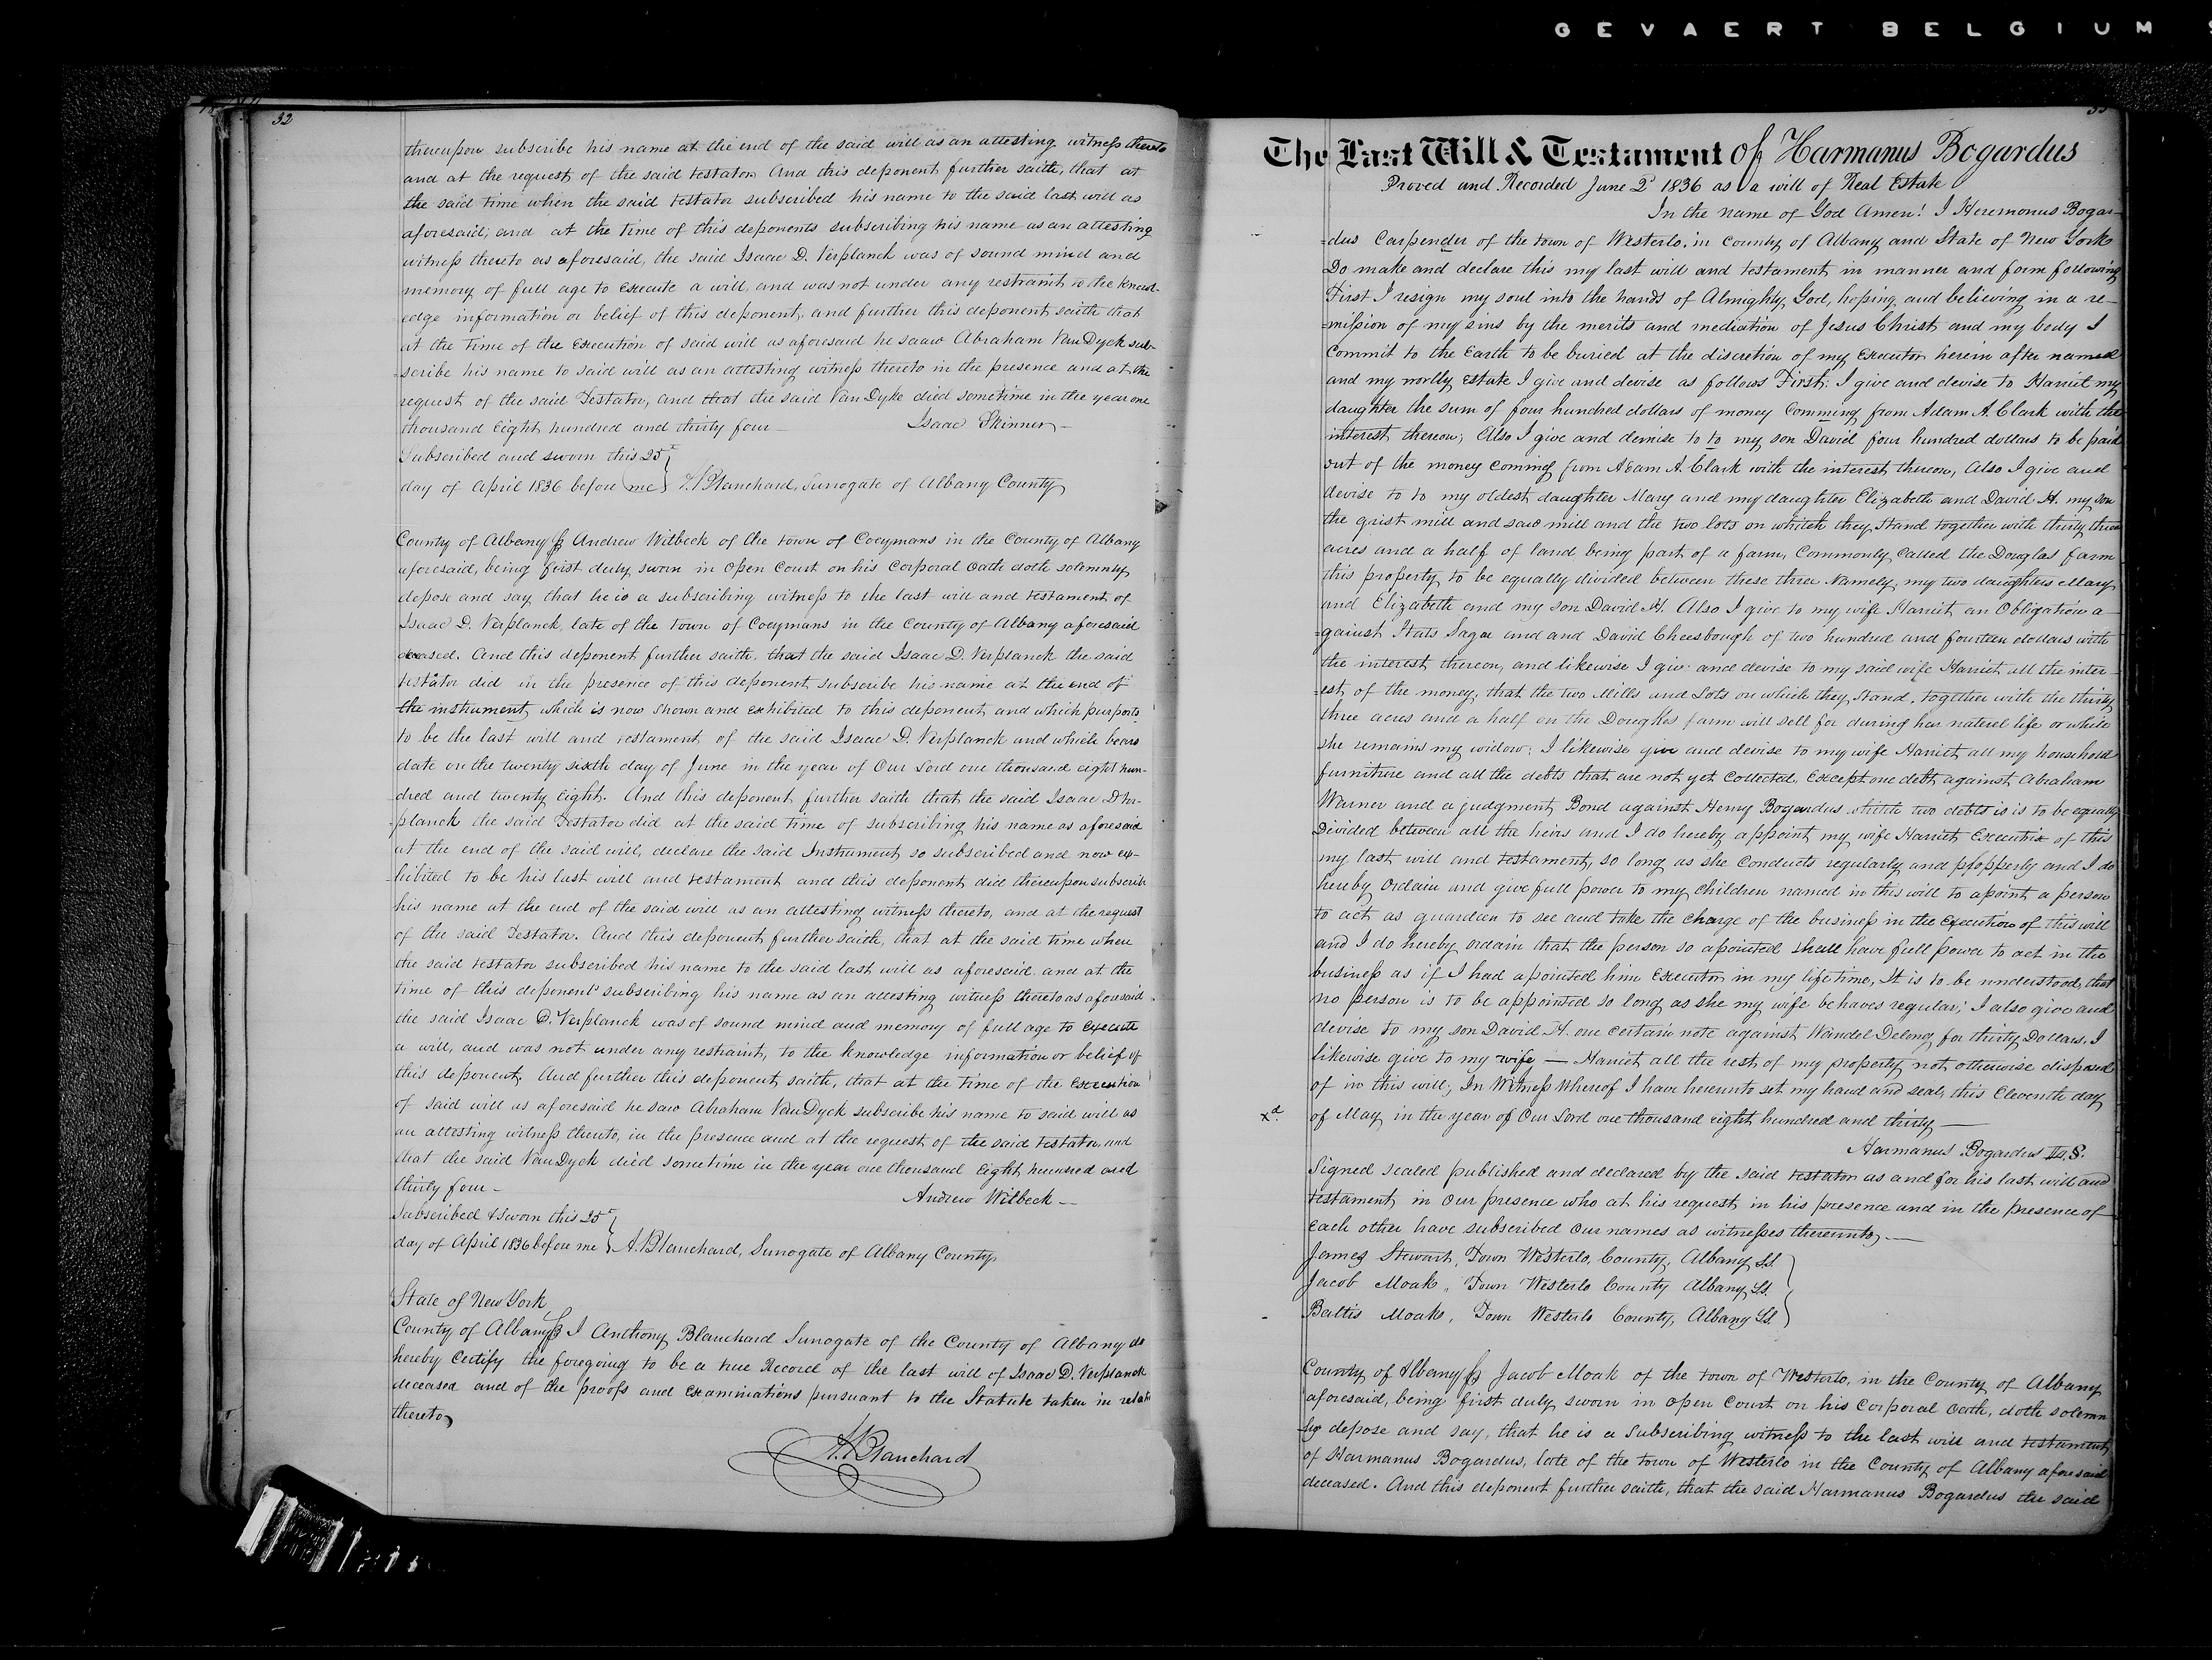 GEVAERT BELGIUM
32
thereupon subscribe his name at the end of the said will as an attesting witness thereto
and at the request of the said testator. And this deponent further saith, that at
the said time when the said testator subscribed his name to the said last will as
aforesaid, and at the time of this deponents subscribing his name as an attesting
witness thereto as aforesaid, the said Isaac D. Verplanck was of sound mind and
memory of full age to execute a will, and was not under any restraint to the knowl-
edge information or belief of this deponent, and further this deponent saith that
at the time of the Execution of said will as aforesaid he saaw Abraham Van Dyck sub-
=scribe his name to said will as an attesting witness thereto in the presence and at the
request of the said Testator, and that the said Van Dyke died sometime in the year one
thousand Eight hundred and thirty four — Isaac Skinner —
Subscribed and sworn this 25th
day of April 1836 before me } A. Blanchard, Surrogate of Albany County
County of Albany ss Andrew Witbeck of the town of Coeymans in the County of Albany
aforesaid, being first duly sworn in Open Court on his Corporal Oath doth solemnly
depose and say that he is a subscribing witness to the last will and testament of
Isaac D. Verplanck, late of the Town of Coeymans in the County of Albany aforesaid
deceased. And this deponent further saith, that the said Isaac D. Verplanck the said
testator did in the presence of this deponent subscribe his name at the end of
the instrument which is now shown and exhibited to this deponent and which purports
to be the last will and testament of the said Isaac D. Verplanck and which bears
date on the twenty sixth day of June in the year of Our Lord one thousand eight hun-
dred and twenty Eight. And this deponent further saith that the said Isaac D Ver-
=planck the said Testator did at the said time of subscribing his name as aforesaid
at the end of the said will, declare the said Instrument so subscribed and now ex-
hibited to be his last will and testament and this deponent did thereupon subscribe
his name at the end of the said will as an attesting witness thereto, and at the request
of the said Testator. And this deponent further saith, that at the said time when
the said testator subscribed his name to the said last will as aforesaid and at the
time of this deponents subscribing his name as an attesting witness thereto as aforesaid
the said Isaac D. Verplanck was of sound mind and memory of full age to Execute
a will, and was not under any restraint, to the knowledge information or belief of
this deponent. And further this deponent saith, that at the time of the Execution
of said will as aforesaid he saw Abraham Van Dyck subscribe his name to said will as
an attesting witness thereto, in the presence and at the request of the said testator, and
that the said Van Dyck died sometime in the year one thousand Eight hundred and
thirty four — Andrew Witbeck —
Subscribed & sworn this 25th
day of April 1836 before me } A. Blanchard, Surrogate of Albany County
State of New York
County of Albany ss I Anthony Blanchard Surrogate of the County of Albany do
hereby Certify the foregoing to be a true Record of the last will of Isaac D. Verplanck
deceased and of the proofs and Examinations pursuant to the Statute taken in relati
thereto
A. Blanchard
33
The Last Will & Testament of Harmanus Bogardus
Proved and Recorded June 2d 1836 as a will of Real Estate
In the name of God Amen! I Heremonus Bogar-
=dus Carpender of the town of Westerlo. in County of Albany and State of New York
Do make and declare this my last will and testament in manner and form following
First I resign my soul into the hands of Almighty God, hoping and believing in a re-
=mission of my sins by the merits and mediation of Jesus Christ and my body I
Commit to the Earth to be buried at the discretion of my Executor herein after named
and my worlly Estate I give and devise as follows First: I give and devise to Harriet my
daughter the sum of four hundred dollars of money Comming from Adam A. Clark with the
interest thereon; Also I give and demise to to my son David four hundred dollars to be paid
out of the money coming from Adam A. Clark with the interest thereon, Also I give and
devise to to my oldest daughter Mary and my daughter Elizabeth and David H. my son
the grist mill and saw mill and the two lots on whitch they Stand together with thirty three
acres and a half of land being part of a farm, Commonly Called the Douglas farm
this property to be equally divided between these three Namely, my two daughters Mary
and Elizabeth and my son David H. Also I give to my wife Harriet an Obligation a-
=gainst Hats Sager and and David Cheesbough of two hundred and fourteen dollars with
the interest thereon, and likewise I giv: and devise to my said wife Harriet all the inter-
=est of the money, that the two Mills and Lots on which they Stand, together with the thirty
three acres and a half on the Douglas farm will sell for during her naturel life or while
she remains my widow; I likewise give and devise to my wife Harriet all my household
furniture and all the debts that are not yet Collected, Except one debt against Abraham
Warner and a judgment Bond against Henry Bogardus which two debts is is to be equally
Divided between all the heirs and I do hereby appoint my wife Harriet Executrix of this
my last will and testament, so long as she Conducts regularly and propperly and I do
hereby Ordain and give full power to my Children named in this will to apoint a person
to act as guardeen to see and take the Charge of the business in the Execution of this will
and I do hereby Ordain that the person so apointed shall have full power to act in the
business as if I had apointed him Executor in my life time, It is to be understood, that
no person is to be appointed so long as she my wife behaves regular; I also give and
devise to my son David H. one Certain note against Wandel Delong for thirty Dollars. I
likewise give to my wife — Harriet all the rest of my property not otherwise disposed
of in this will; In Witness Whereof I have hereunto set my hand and seal, this Eleventh day
xd. of May in the year of Our Lord one thousand eight hundred and thirty —
Harmanus Bogardus L.S.
Signed sealed published and declared by the said testator as and for his last will and
testament in Our presence who at his request in his presence and in the presence of
Each other have subscribed Our names as witnesses thereunto —
James Stewart, Town Westerlo, County, Albany Ss.
Jacob Moak, Town Westerlo County Albany Ss.
Baltis Moak, Town Westerlo County, Albany Ss.
County of Albany ss Jacob Moak of the town of Westerlo, in the County of Albany
aforesaid, being first duly sworn in Open Court on his Corporal Oath, doth solemn
ly depose and say, that he is a Subscribing witness to the last will and testament
of Harmanus Bogardus, late of the town of Westerlo in the County of Albany aforesaid
deceased. And this deponent further saith, that the said Harmanus Bogardus the said